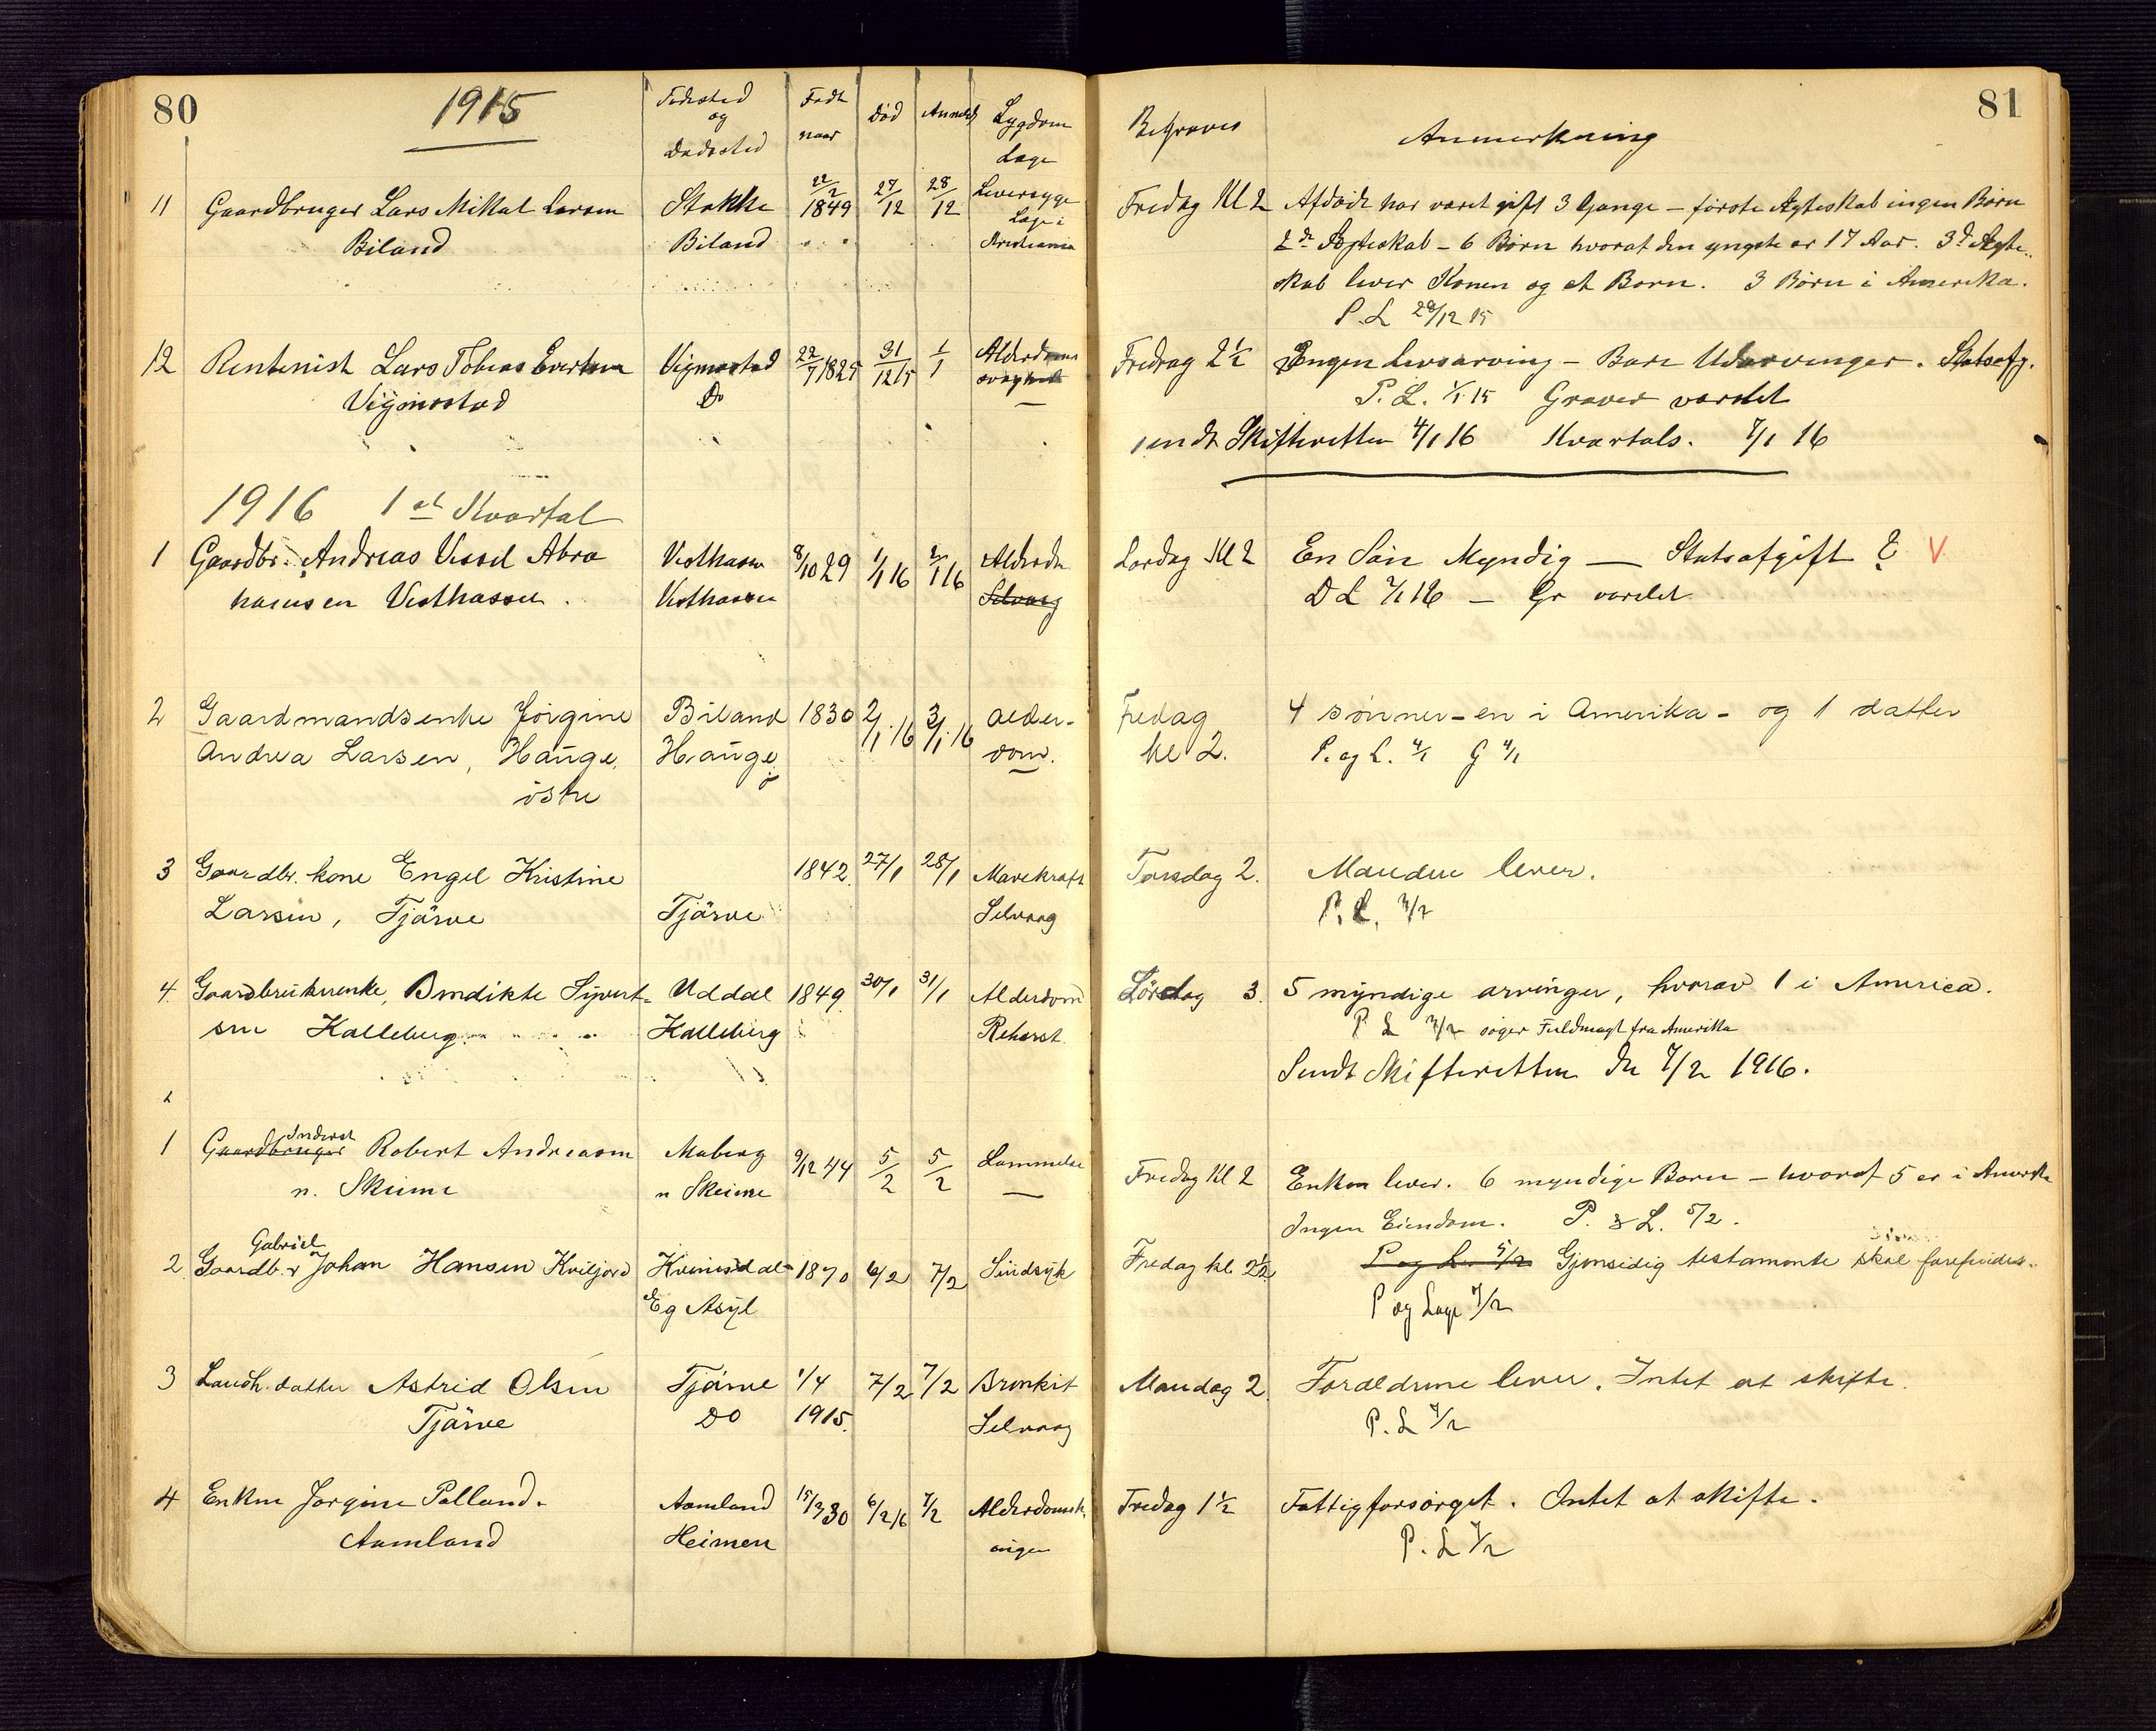 80
1915
Fødested og Dødssted
Født naar
Død
Anmeldt
Sygdom Læge
Begraves
Anmerkning
81
11 Gaardbruger Lars Mikal Larsen Stokke 22/2 1849 27/12 28/12 Leversyge Fredag Kl 2 Afdøde har været gift 3 Gange – første Ægteskab ingen Børn
Biland Biland Læge i Kristiania 2de Ægteskab – 6 Børn hvoraf den yngste er 17 Aar. 3d Ægte-
skab lever Konen og et Barn. 3 Børn i Amerika.
P. L 28/12 15
12 Rentenist Lars Tobias Evertsen Vigmostad 22/7 1825 31/12 15 1/1 Alderdoms Fredag 2½ Ingen Livsarving – Bare Udarvinger. Statsafg.
Vigmostad Do svaghed P. L. 1/1 15 Graver varslet
sendt Skifteretten 4/1 16 Kvartals. 7/1 16
1916 1st Kvartal
1 Gaardbr. Andreas Vissel Abra Vesthassel 8/10 29 1/1 16 2/1 16 Alderdom Lørdag Kl 2 En Søn Myndig — Statsafgift ? V
hamsen Vesthassel. Vesthassel Selvaag D L 2/1 16 — Gr varslet
2 Gaardmandsenke Jørgine Biland 1830 2/1.16 3/1.16 alder- Fredag 4 sønner – en i Amerika – og 1 datter
Andrea Larsen, Hauge Hauge dom. kl 2. P. og L. 4/1 G 4/1
østre ø
3 Gaardbr. kone Engel Kristine 1842. 27/1 28/1 Mavekræft Torsdag 2. Manden lever.
Larsen, Tjørve Tjørve Selvaag P. L. 3/2
4. Gaardbrukerenke, Bendikte Sivert- Uddal 1849 30/1 31/1 Alderdom Lørdag 3. 5 myndige arvinger, hvorav 1 i America.
sen Kalleberg Kalleberg Rehorst P L 3/2 søger Fuldmagt fra Amerika
Sendt Skifteretten de 7/2 1916.
2
Inderst
1 Gaardbruger Robert Andreasen Maberg 9/12 44 5/2 5/2 Lammelse Fredag Kl 2 Enken lever. 6 myndige Børn – hvoraf 5 er i Amerika
n. Skeime n Skeime Ingen Eiendom. P. & L. 5/2.
Gabriel
2 Gaardb.r Johan Hansen Kviljord Kvinesdal 1870 6/2 7/2 Sindsyk Fredag kl. 2½ P og L. 5/2 Gjensidig testamente skal forefindes.
Eg Asyl P og Læge 7/2
3 Landh. datter Astrid Olsen Tjørve 1/4 7/2 7/2 Bronkit Mandag 2 Forældrene lever. Intet at skifte.
Tjørve Do 1915. Selvaag P. L 7/2
4 Enken Jørgine Palland. Aamland 15/3 30 6/2 16 7/2 Alderdomsk. Fredag 1½ Fattigforsørget. Intet at skifte.
Aamland Heimen ingen P. L 7/2